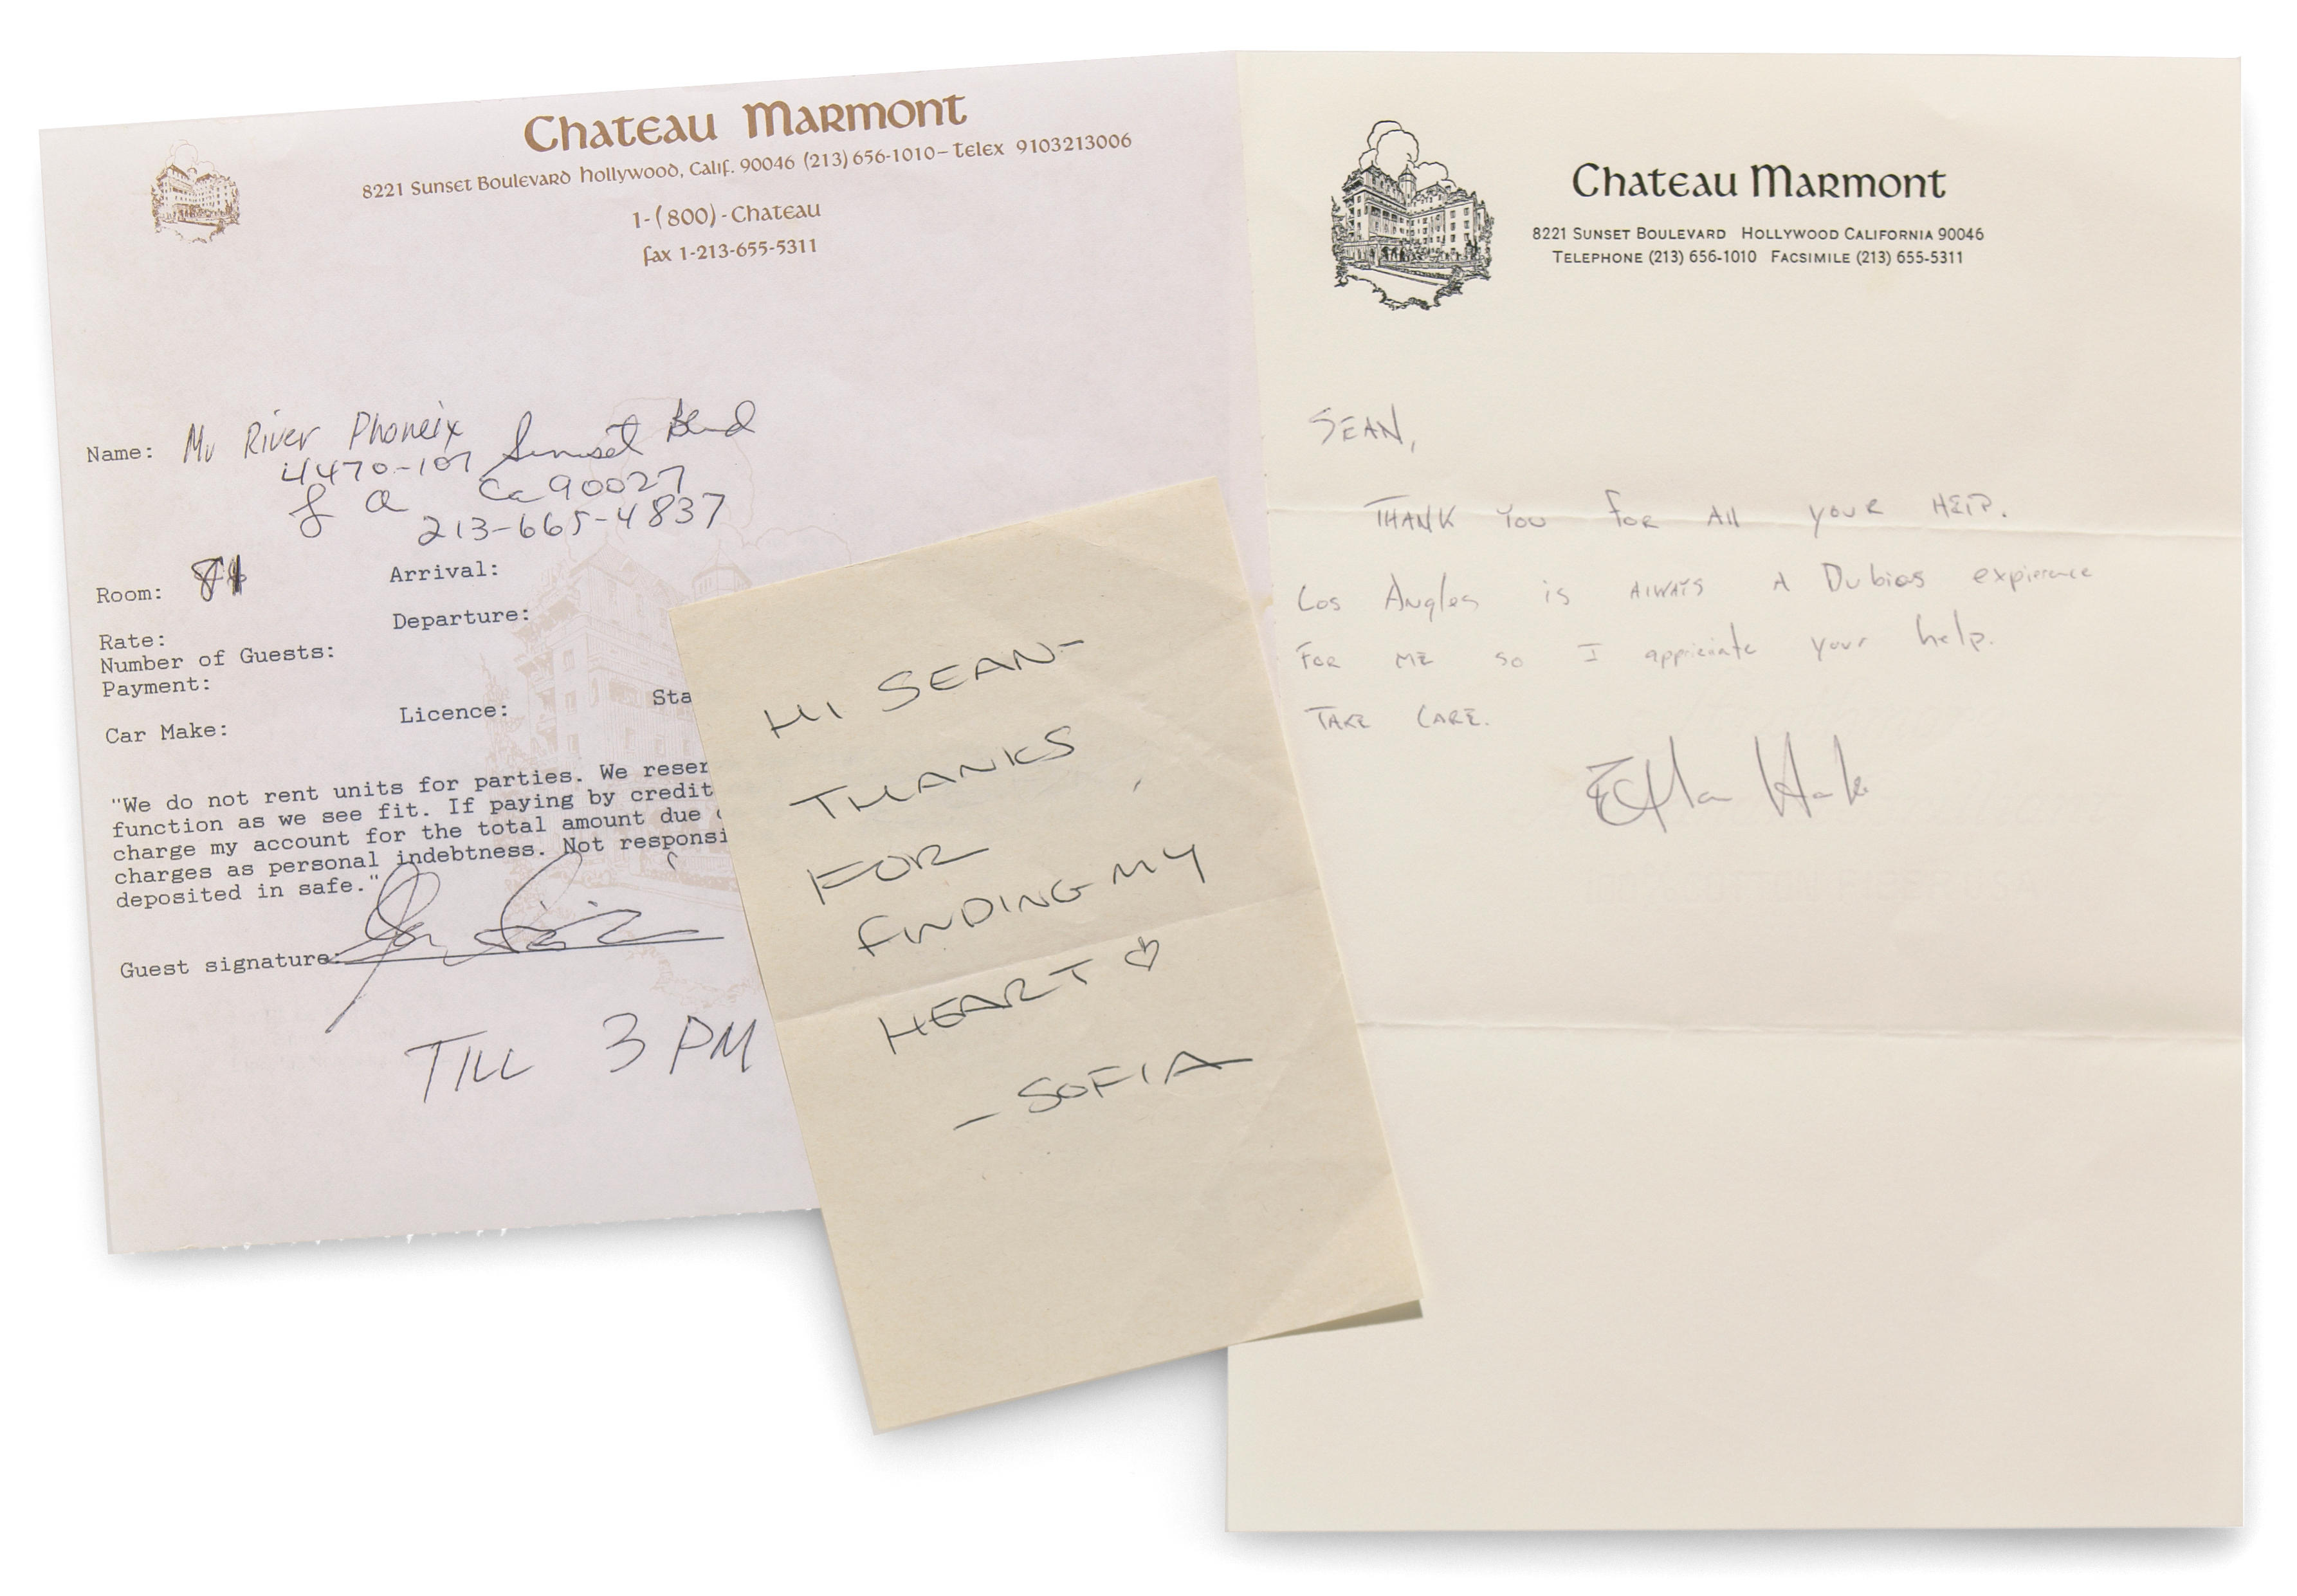 Chateau Marmont
8221 Sunset Boulevard Hollywood, Calif. 90046 (213) 656-1010 – Telex 9103213006
1-(800)-Chateau
fax 1-213-655-5311
Name: Mr River Phoneix
4470-107 Sunset Blvd
L A Ca 90027
213-665-4837
Room:
Arrival:
Departure:
Rate:
Number of Guests:
Payment:
Car Make:
Licence:
Sta
"We do not rent units for parties. We reser
function as we see fit. If paying by credit
charge my account for the total amount due
charges as personal indebtness. Not responsi
deposited in safe."
Guest signature:
TILL 3 PM
HI SEAN-
THANKS
FOR
FINDING MY
HEART ♡
– SOFIA
Chateau Marmont
8221 Sunset Boulevard Hollywood California 90046
Telephone (213) 656-1010 Facsimile (213) 655-5311
SEAN,
THANK YOU FOR All YOUR HElP.
Los Angles is AlWAYS A Dubios expierence
FOR ME so I appriciate your help.
TAKE CARE.
Ethan Hawke